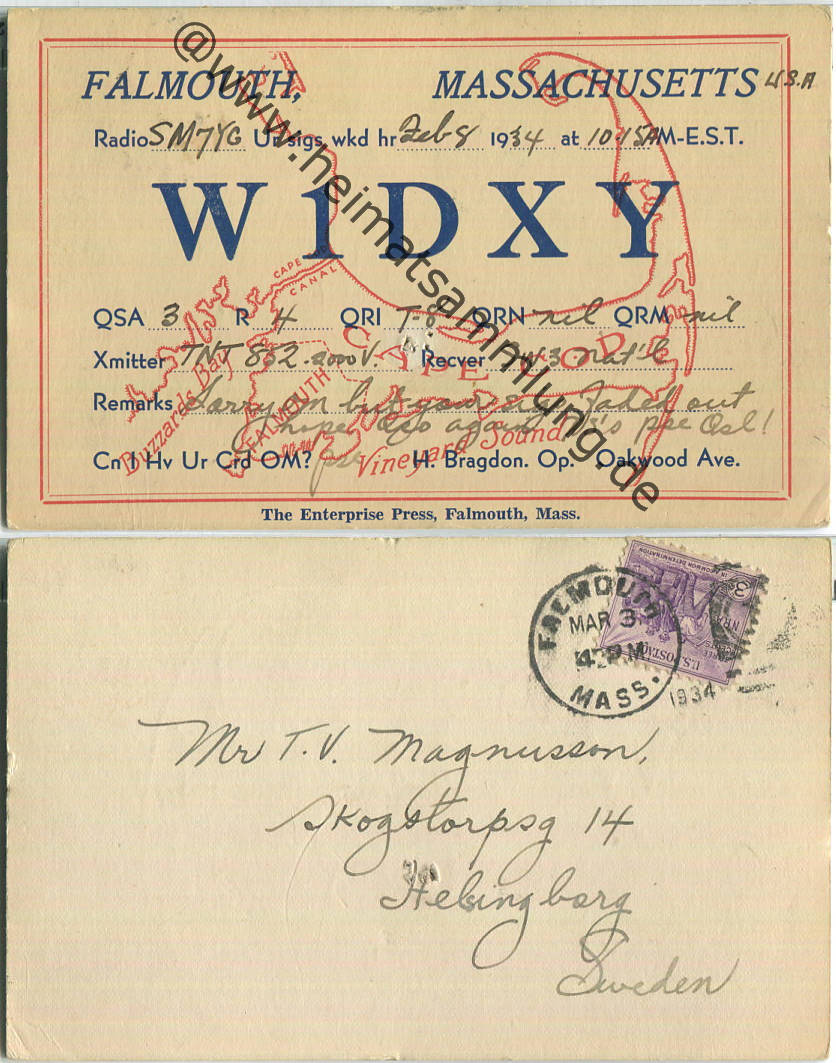 FALMOUTH, MASSACHUSETTS U.S.A
Radio SM7YG Ur sigs wkd hr Feb 8 1934 at 10:15 AM-E.S.T.
W1DXY
CAPE
CANAL
QSA 3 R 4 QRI T-8 QRN nil QRM nil
CAPE COD
Xmitter TNT 852 2000 V. Recver Nat'l
Buzzards Bay
FALMOUTH
Remarks Sorry om but your sigs faded out
hope Qso again 73's pse Qsl!
Vineyard Sound
Cn I Hv Ur Crd OM? pse H. Bragdon. Op. Oakwood Ave.
The Enterprise Press, Falmouth, Mass.
@www.heimatsammlung.de
FALMOUTH
MAR 3
4 PM
MASS.
1934
U.S. POSTAGE
3
NRA
IN A COMMON DETERMINATION
Mr T. V. Magnusson,
Skogstorpsg 14
Helsingborg
Sweden